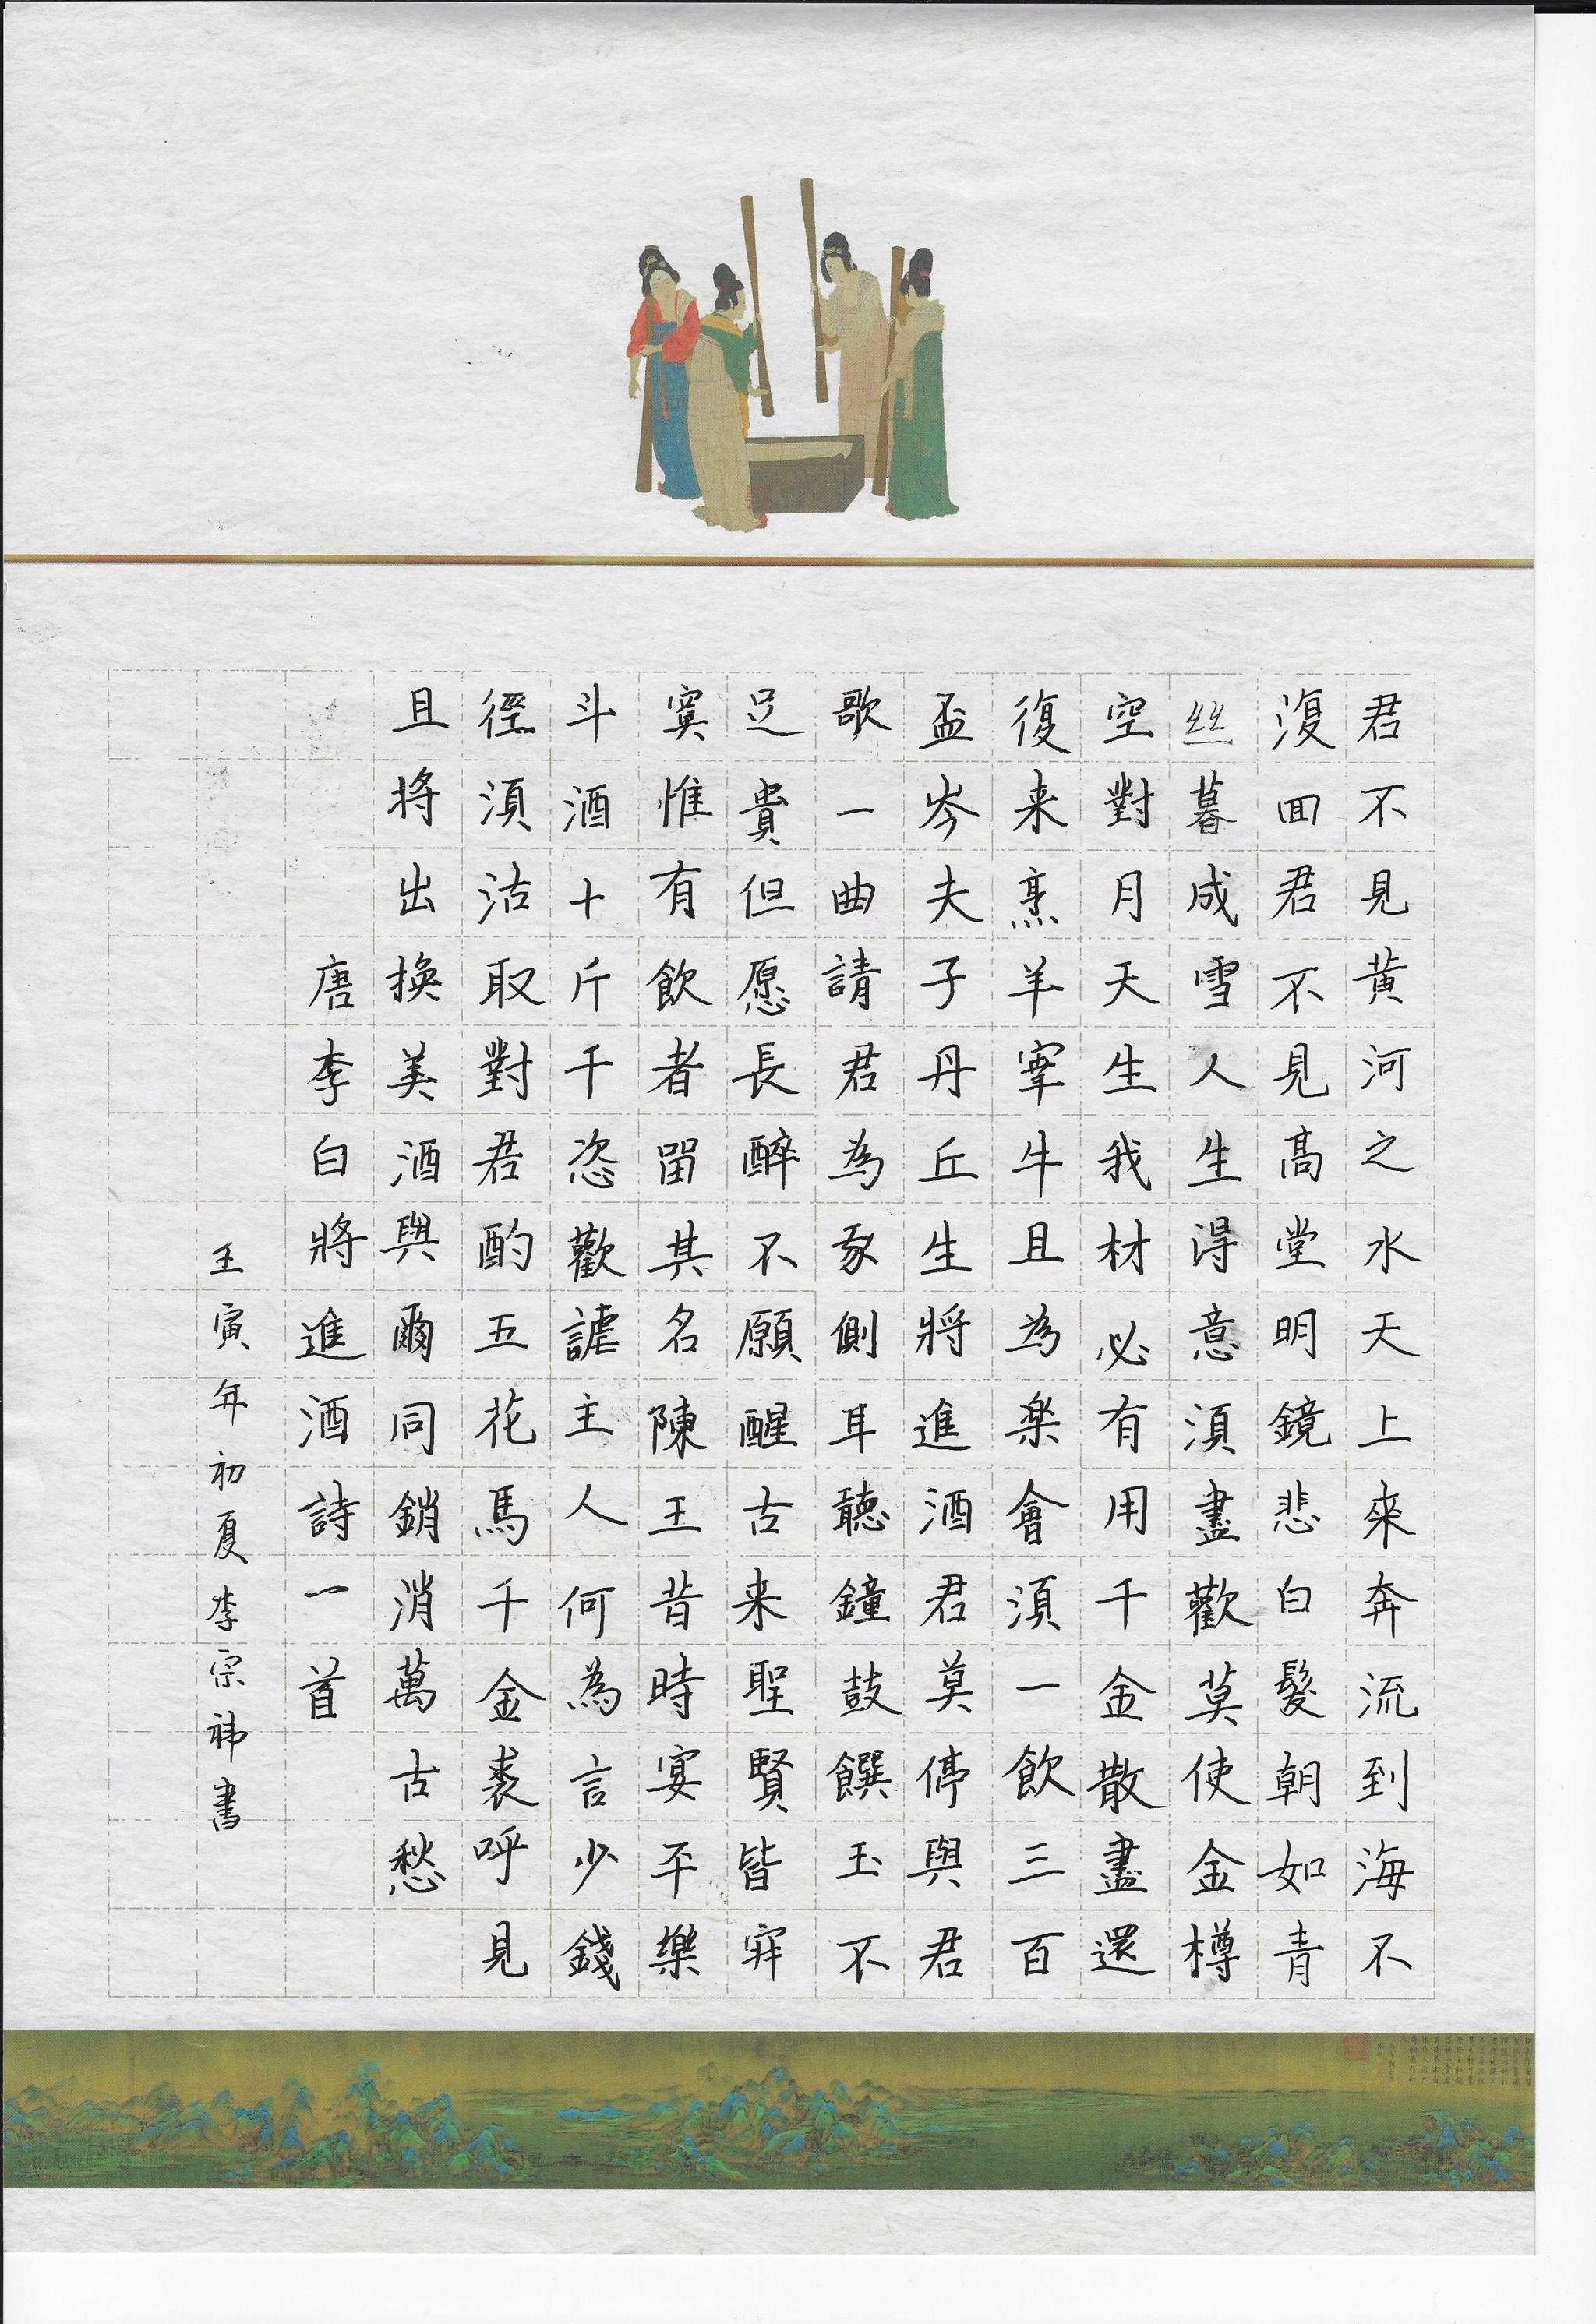 君不見黃河之水天上來奔流到海不
復囬君不見高堂明鏡悲白髮朝如青
丝暮成雪人生得意須盡歡莫使金樽
空對月天生我材必有用千金散盡還
復来烹羊宰牛且為楽會須一飲三百
盃岑夫子丹丘生將進酒君莫停與君
歌一曲請君為我側耳聽鐘鼓饌玉不
足貴但愿長醉不願醒古来聖賢皆寂
寞惟有飲者留其名陳王昔時宴平樂
斗酒十斤千恣歡謔主人何為言少錢
徑須沽取對君酌五花馬千金裘呼見
且将出換美酒與爾同銷消萬古愁
唐李白將進酒詩一首
壬寅年初夏李宗祎書